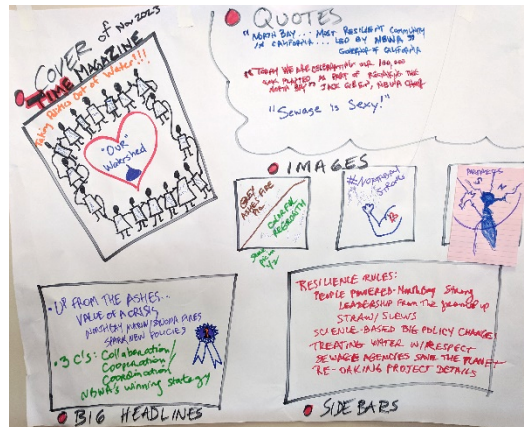 COVER of Nov 2023
TIME MAGAZINE
Taking Politics Out of Water!!!
"OUR"
Watershed
QUOTES
"NORTH BAY... MOST RESILIENT COMMUNITY
IN CALIFORNIA... LED BY NBWA"
GOVERNOR OF CALIFORNIA
"TODAY WE ARE CELEBRATING OUR 100,000
OAK PLANTED AS PART OF THE
NORTH BAY" JACK GIBSON, NBWA CHAIR
"Sewage is Sexy!"
IMAGES
GREY
ASHES FIRE
PIC
COLORFUL
REGROWTH
#NORTHBAY
STRONG
UP FROM THE ASHES...
VALUE OF A CRISIS
NORTHBAY MARIN/SONOMA FIRES
SPARK NEW POLICIES
3 C's: Collaboration/
Cooperation/
Coordination
NBWA's winning strategy
BIG HEADLINES
RESILIENCE RULES:
PEOPLE POWERED-NORTHBAY STRONG
LEADERSHIP FROM THE GROUND UP
STRAW/SLEWS
SCIENCE-BASED BIG POLICY CHANGES
TREATING WATER W/RESPECT
SEWAGE AGENCIES SAVE THE PLANET
RE-OAKING PROJECT DETAILS
SIDE BARS